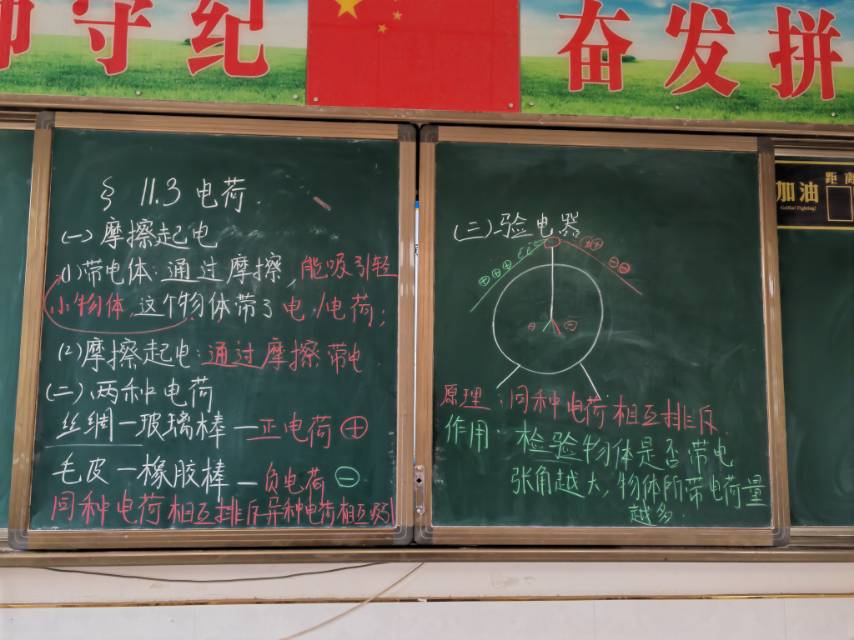 师守纪
奋发拼
加油
距离
§ 11.3 电荷
(一) 摩擦起电
(1) 带电体: 通过摩擦, 能吸引轻
小物体, 这个物体带了电/电荷;
(2) 摩擦起电: 通过摩擦带电
(二) 两种电荷
丝绸—玻璃棒—正电荷 ⊕
毛皮—橡胶棒—负电荷 ⊖
同种电荷相互排斥异种电荷相互吸引
(三) 验电器
⊕⊕⊕
⊖⊖
原理: 同种电荷相互排斥
作用: 检验物体是否带电
张角越大, 物体所带电荷量
越多.